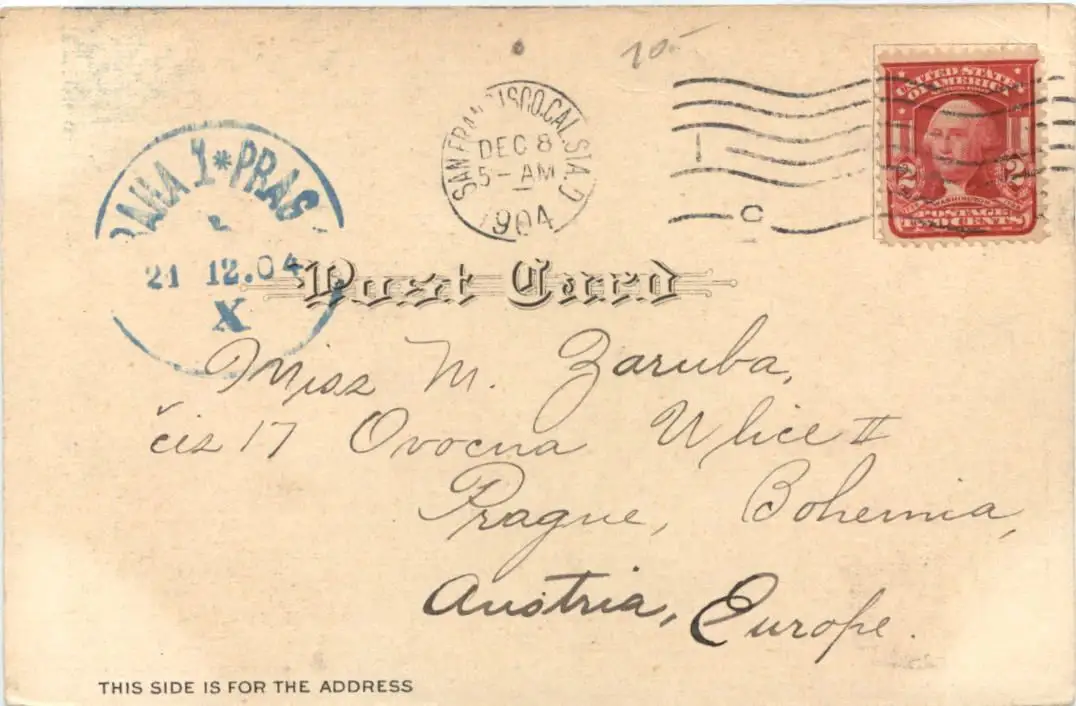 70.-
SAN FRANCISCO.CAL. STA.D
DEC 8
5-AM
1904
C
UNITED STATES
OF AMERICA
2 2
WASHINGTON
POSTAGE
TWO CENTS
PRAHA 1 * PRAG
21 12.04
X
Post Card
Miss M. Zaruba,
čis 17 Ovocna Ulice II
Prague, Bohemia,
Austria, Europe.
THIS SIDE IS FOR THE ADDRESS